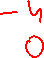 - 4
0